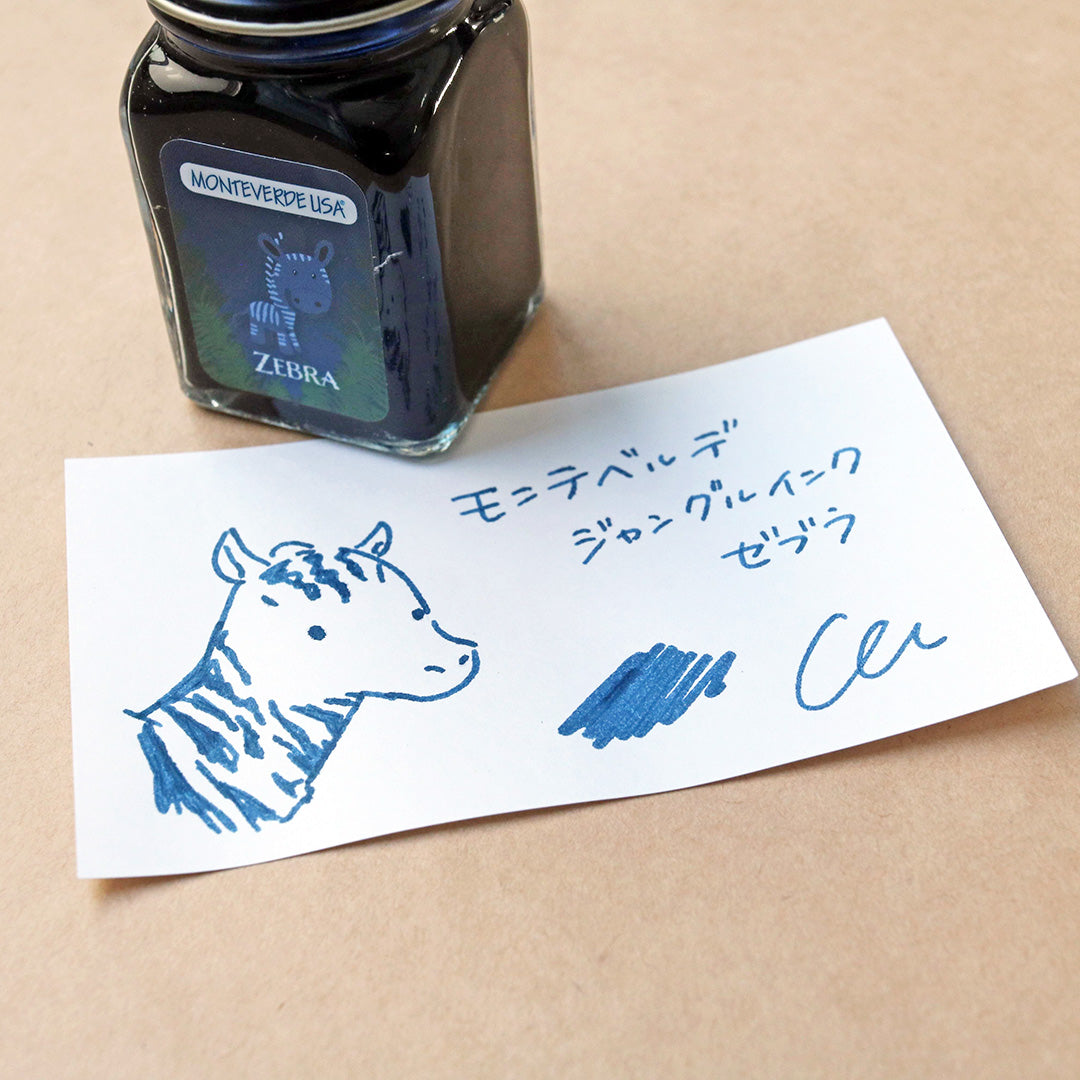 MONTEVERDE USA®
ZEBRA
モンテベルデ
ジャングルインク
ゼブラ